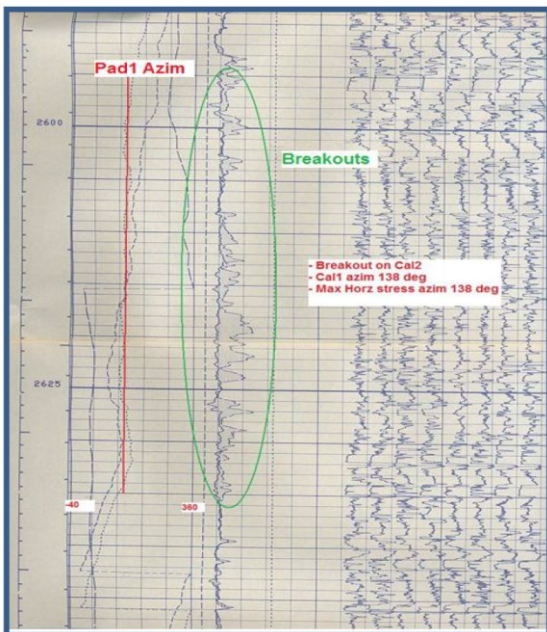 Pad1 Azim
2600
Breakouts
- Breakout on Cal2
- Cal1 azim 138 deg
- Max Horz stress azim 138 deg
2625
-40
360